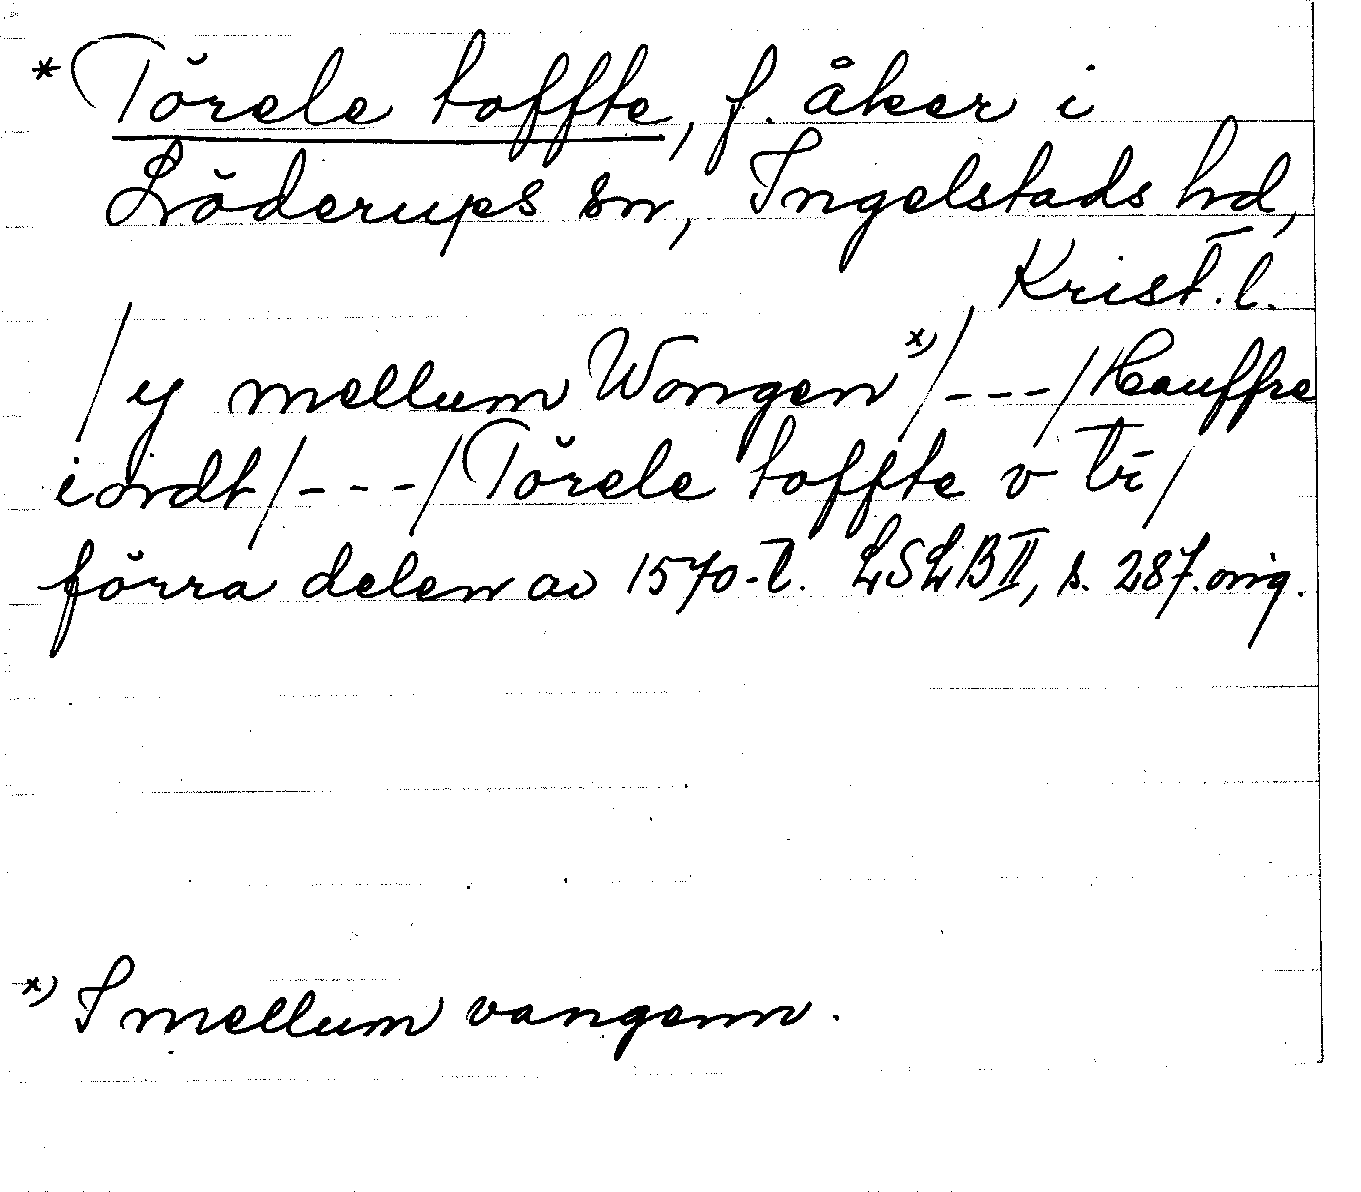 * Törele toffte, f. åker i
Löderups sn, Ingelstads hd,
Krist. l.
/ y mellum Wongen x) / --- / Hauffre
iordt / --- / Törele toffte v tī /
förra delen av 1570-t. LSLB II, s. 287. orig.
x) I mellum vangenn.